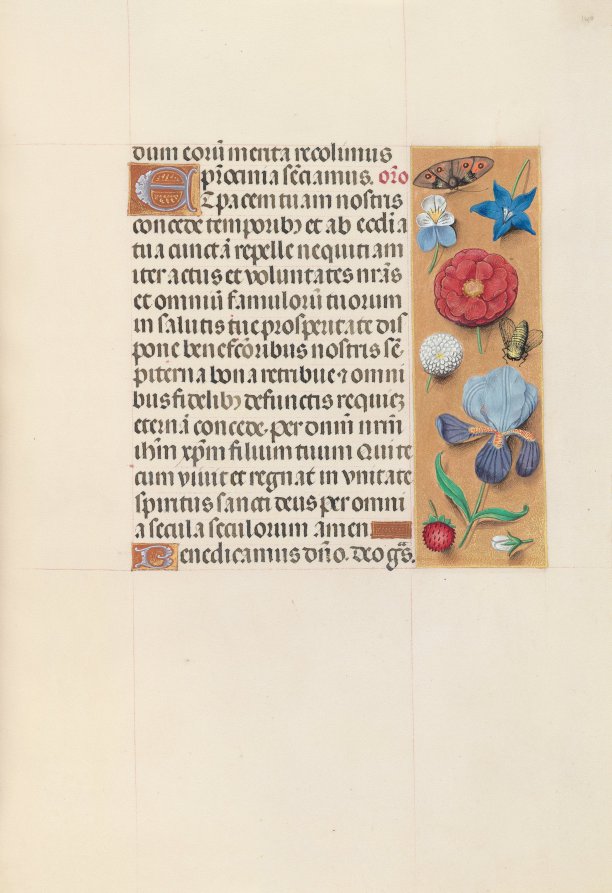 dum corū merita recolimus
p̄rocinia sēciamus. oro
Et pacem tuam nostris
concede temporibȝ et ab ecclīa
tua cunctā repelle nequitiam
iter actus et voluntates nrās
et omniū famulorū tuorum
in salutis tue prosperitate dis
pone benefcōribus nostris sē
piterna bona retribue ⁊ omni
bus fidelibȝ defunctis requiēȝ
eternā concede. per dnūm nrm̄
ihm̄ xp̄m filium tuum Qui te
cum viuit et regnat in vnitate
spiritus sancti deus per omni
a secula seculorum amen
Benedicamus dn̄o. Deo gr̄s.